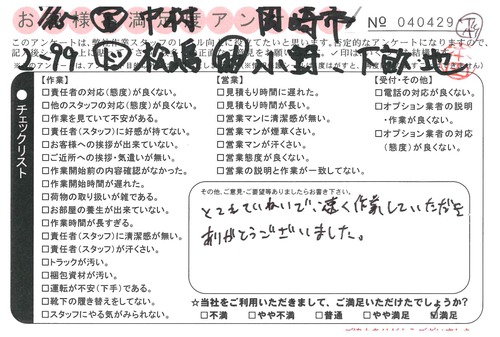 お客様満足度アンケート
中村 岡崎市
№ 040429
このアンケートは、弊社作業スタッフのレベル向上に役立てたいと思います。否定的なアンケートになりますので、
松島
チェックリスト
【作業】
□責任者の対応(態度)が良くない。
□他のスタッフの対応(態度)が良くない。
□作業を見ていて不安がある。
□責任者(スタッフ)に好感が持てない。
□お客様への挨拶が出来ていない。
□ご近所への挨拶・気遣いが無い。
□作業開始前の内容確認がなかった。
□作業開始時間が遅れた。
□荷物の取り扱いが雑である。
□お部屋の養生が出来ていない。
□作業時間が長すぎる。
□責任者(スタッフ)に清潔感が無い。
□責任者(スタッフ)が汗くさい。
□トラックが汚い。
□梱包資材が汚い。
□運転が不安(下手)である。
□靴下の履き替えをしてない。
□スタッフにやる気がみられない。
【営業】
□見積もり時間に遅れた。
□見積もり時間が長い。
□営業マンに清潔感が無い。
□営業マンが煙草くさい。
□営業マンが汗くさい。
□営業態度が良くない。
□営業の説明と作業が一致してない。
【受付・その他】
□電話の対応が良くない。
□オプション業者の説明
・作業が良くない。
□オプション業者の対応
(態度)が良くない。
その他、ご意見・ご要望等ありましたらお書き下さい。
とてもていねいで、速く作業していただき
ありがとうございました。
☆当社をご利用いただきまして、ご満足いただけたでしょうか?
□不満 □やや不満 □普通 □やや満足 ☑満足